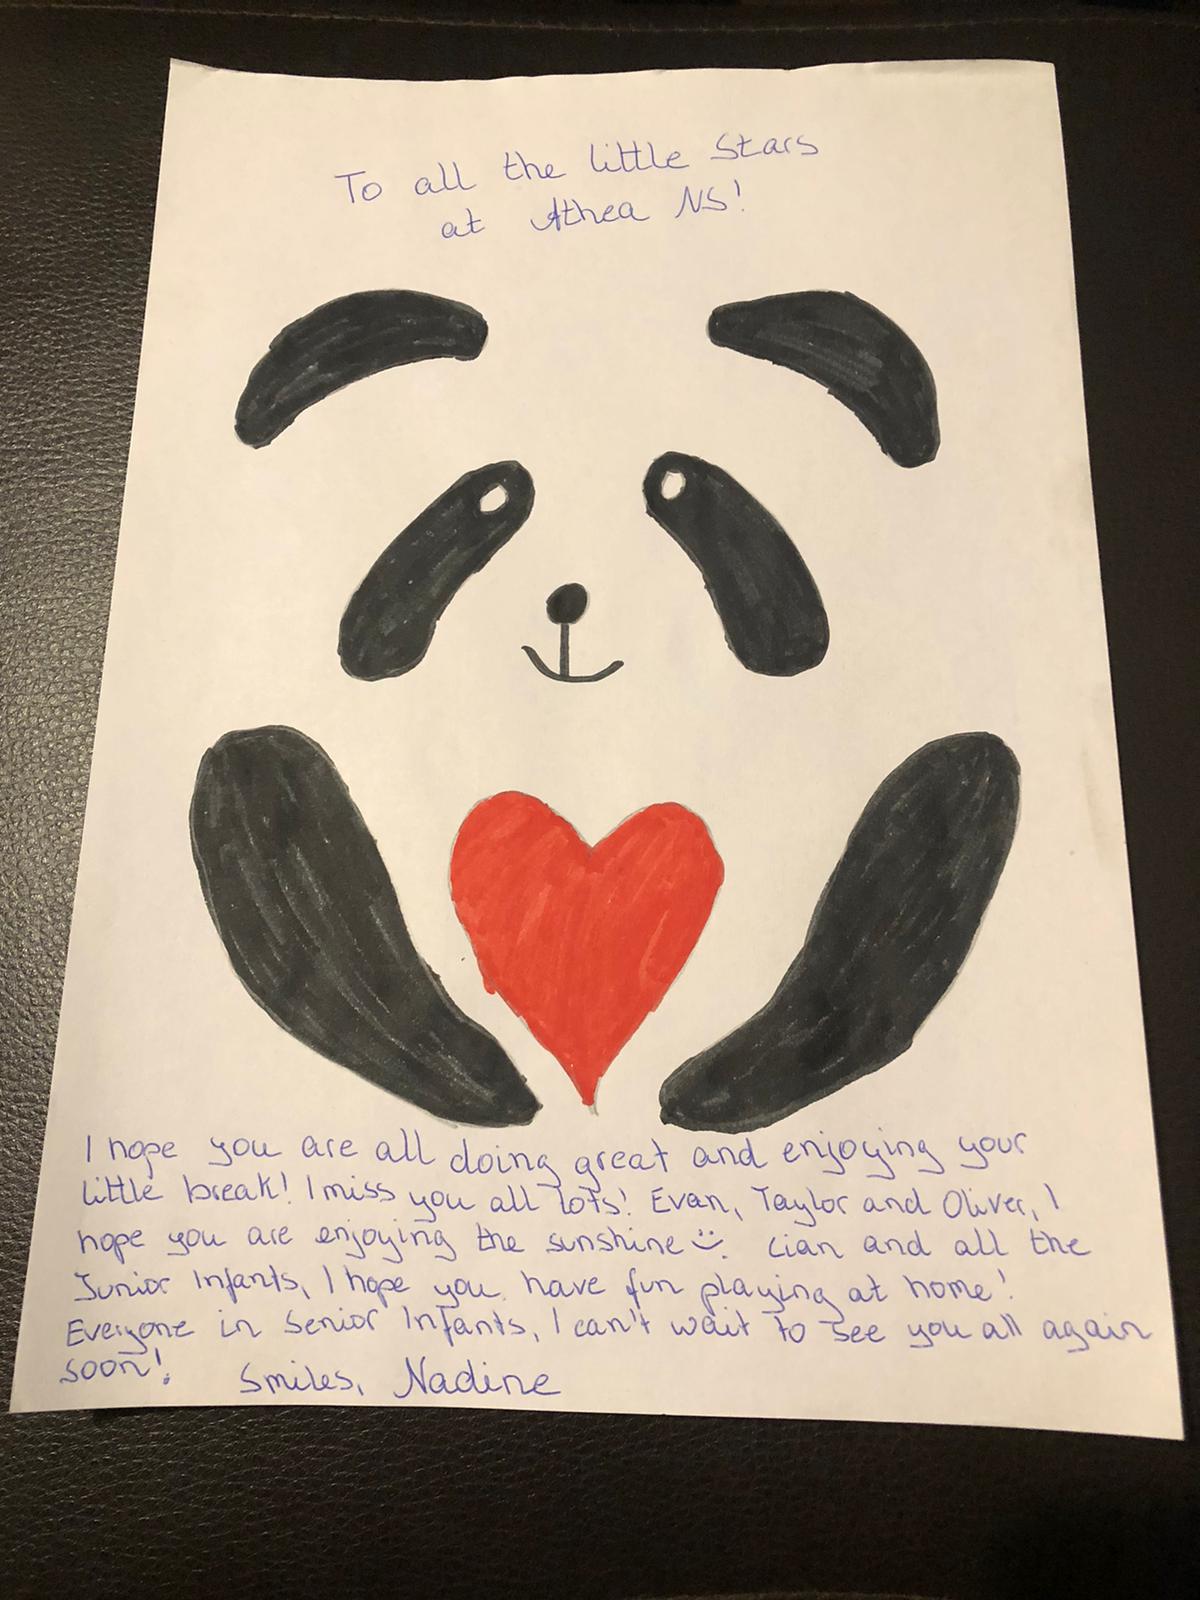 To all the little stars
at Athea NS!
I hope you are all doing great and enjoying your
little break! I miss you all lots! Evan, Taylor and Oliver, I
hope you are enjoying the sunshine :). Cian and all the
Junior Infants, I hope you have fun playing at home!
Everyone in Senior Infants, I can't wait to see you all again
soon! Smiles, Nadine